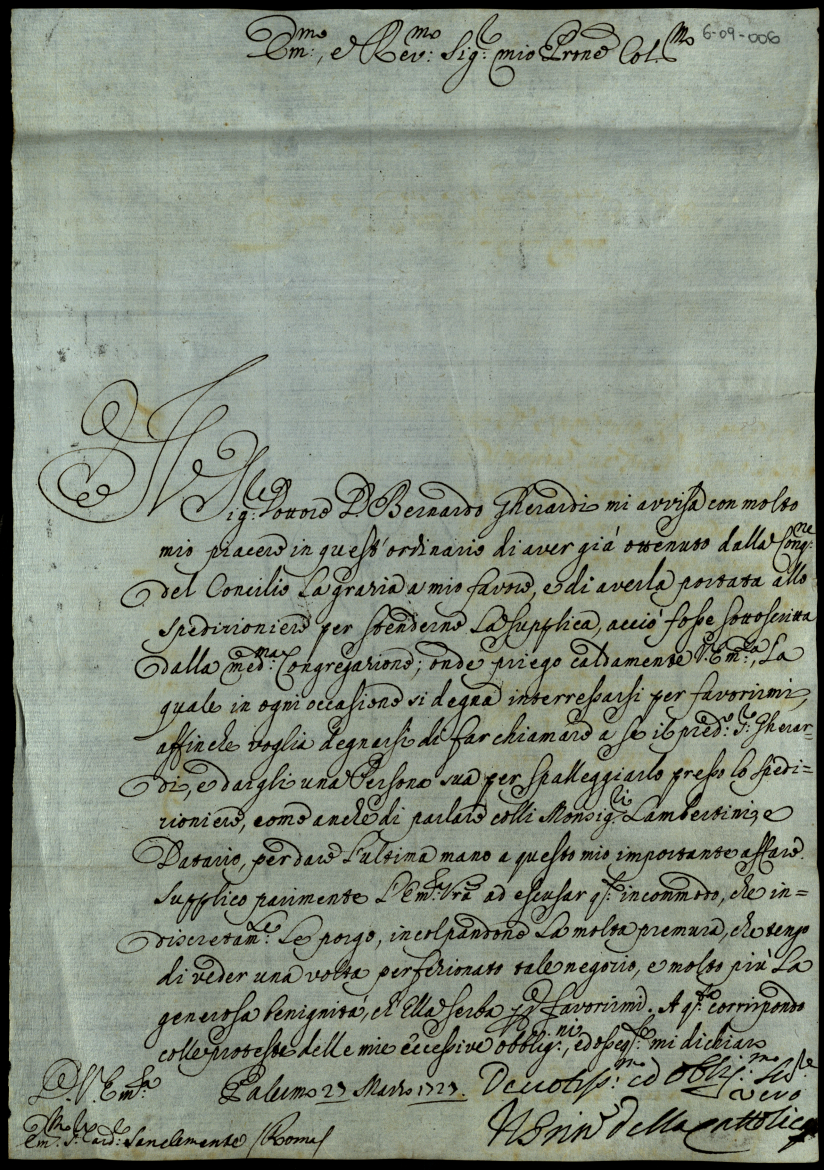 Em:mo, e Rev:mo Sig:r mio Prone Col:mo
6-09-006
Il Sig:le Dottore D. Bernardo Gherardi mi avvisa con molto
mio piacere in quest'ordinario di aver già ottenuto dalla Cong:ne
del Concilio La grazia a mio favore, e di averla portata allo
spedizioniere per stenderne La supplica, acciò fosse sottoscritta
dalla med:ma Congregazione; onde priego caldamente V. Em:za, La
quale in ogni occasione si degna interressarsi per favorirmi,
affinche voglia degnarsi di far chiamare a se il pred:o S:r Gherar-
di, e dargli una Persona sua per spalleggiarlo presso lo spedi=
zioniere, come anche di parlare colli Monsig:li Lambertini, e
Datario, per dare L'ultima mano a questo mio importante affare.
Supplico parimente L'Em:za Vra ad escusar q:sto incommodo, che in=
discretam:te Le porgo, incolpandone La molta premura, che tengo
di veder una volta perfezionato tale negozio, e molto più La
generosa benignità, ch'Ella serba p favorirmi. A q:sta corrispondo
colle proteste delle mie eccessive obblig:ni, ed osseq:se mi dichiaro
D. V. Em:za Palermo 27 Marzo 1727. Devotiss:mo ed Oblig:mo Ser:re
vero
Em:mo S:r Card:le Sanclemente (Roma)
Il Prin:e della Cattolica